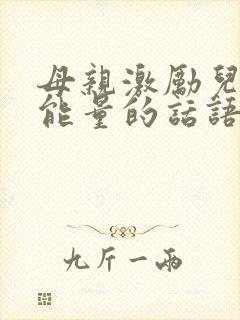 母親激勵兒
能量的話語
九斤一兩